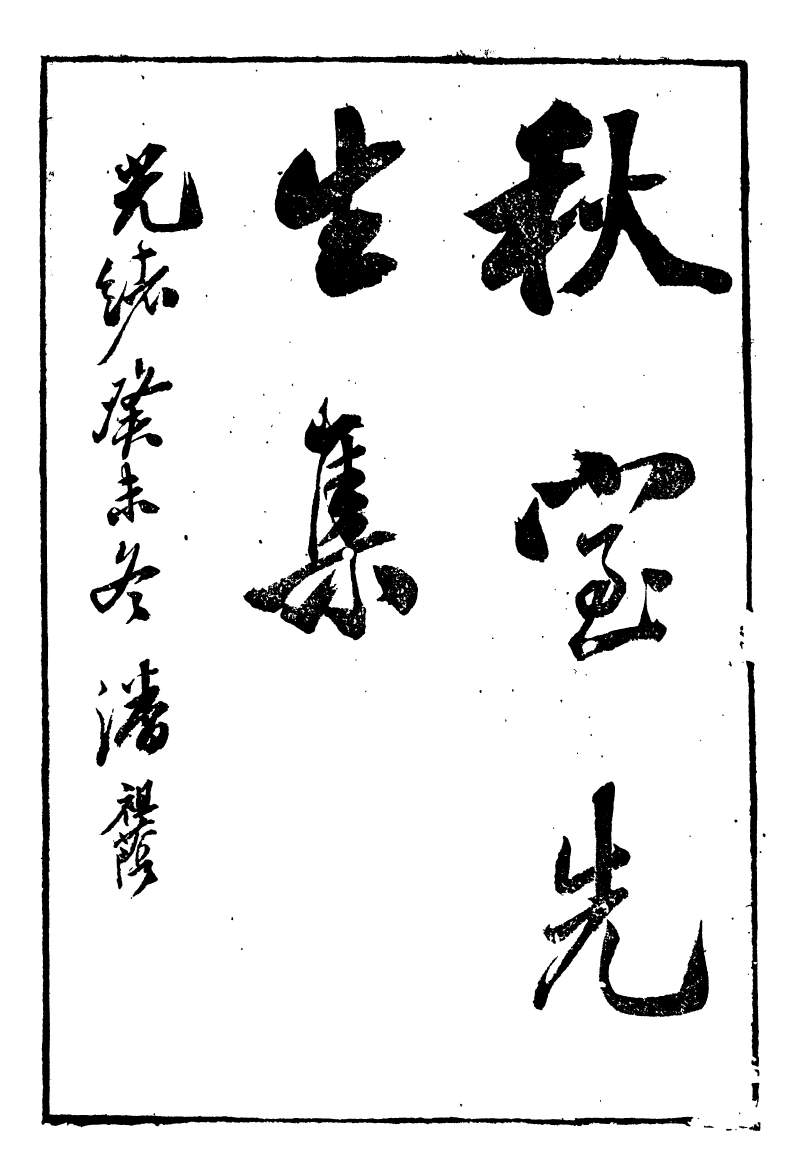 秋室先
生集
光緒癸未冬 潘祖蔭